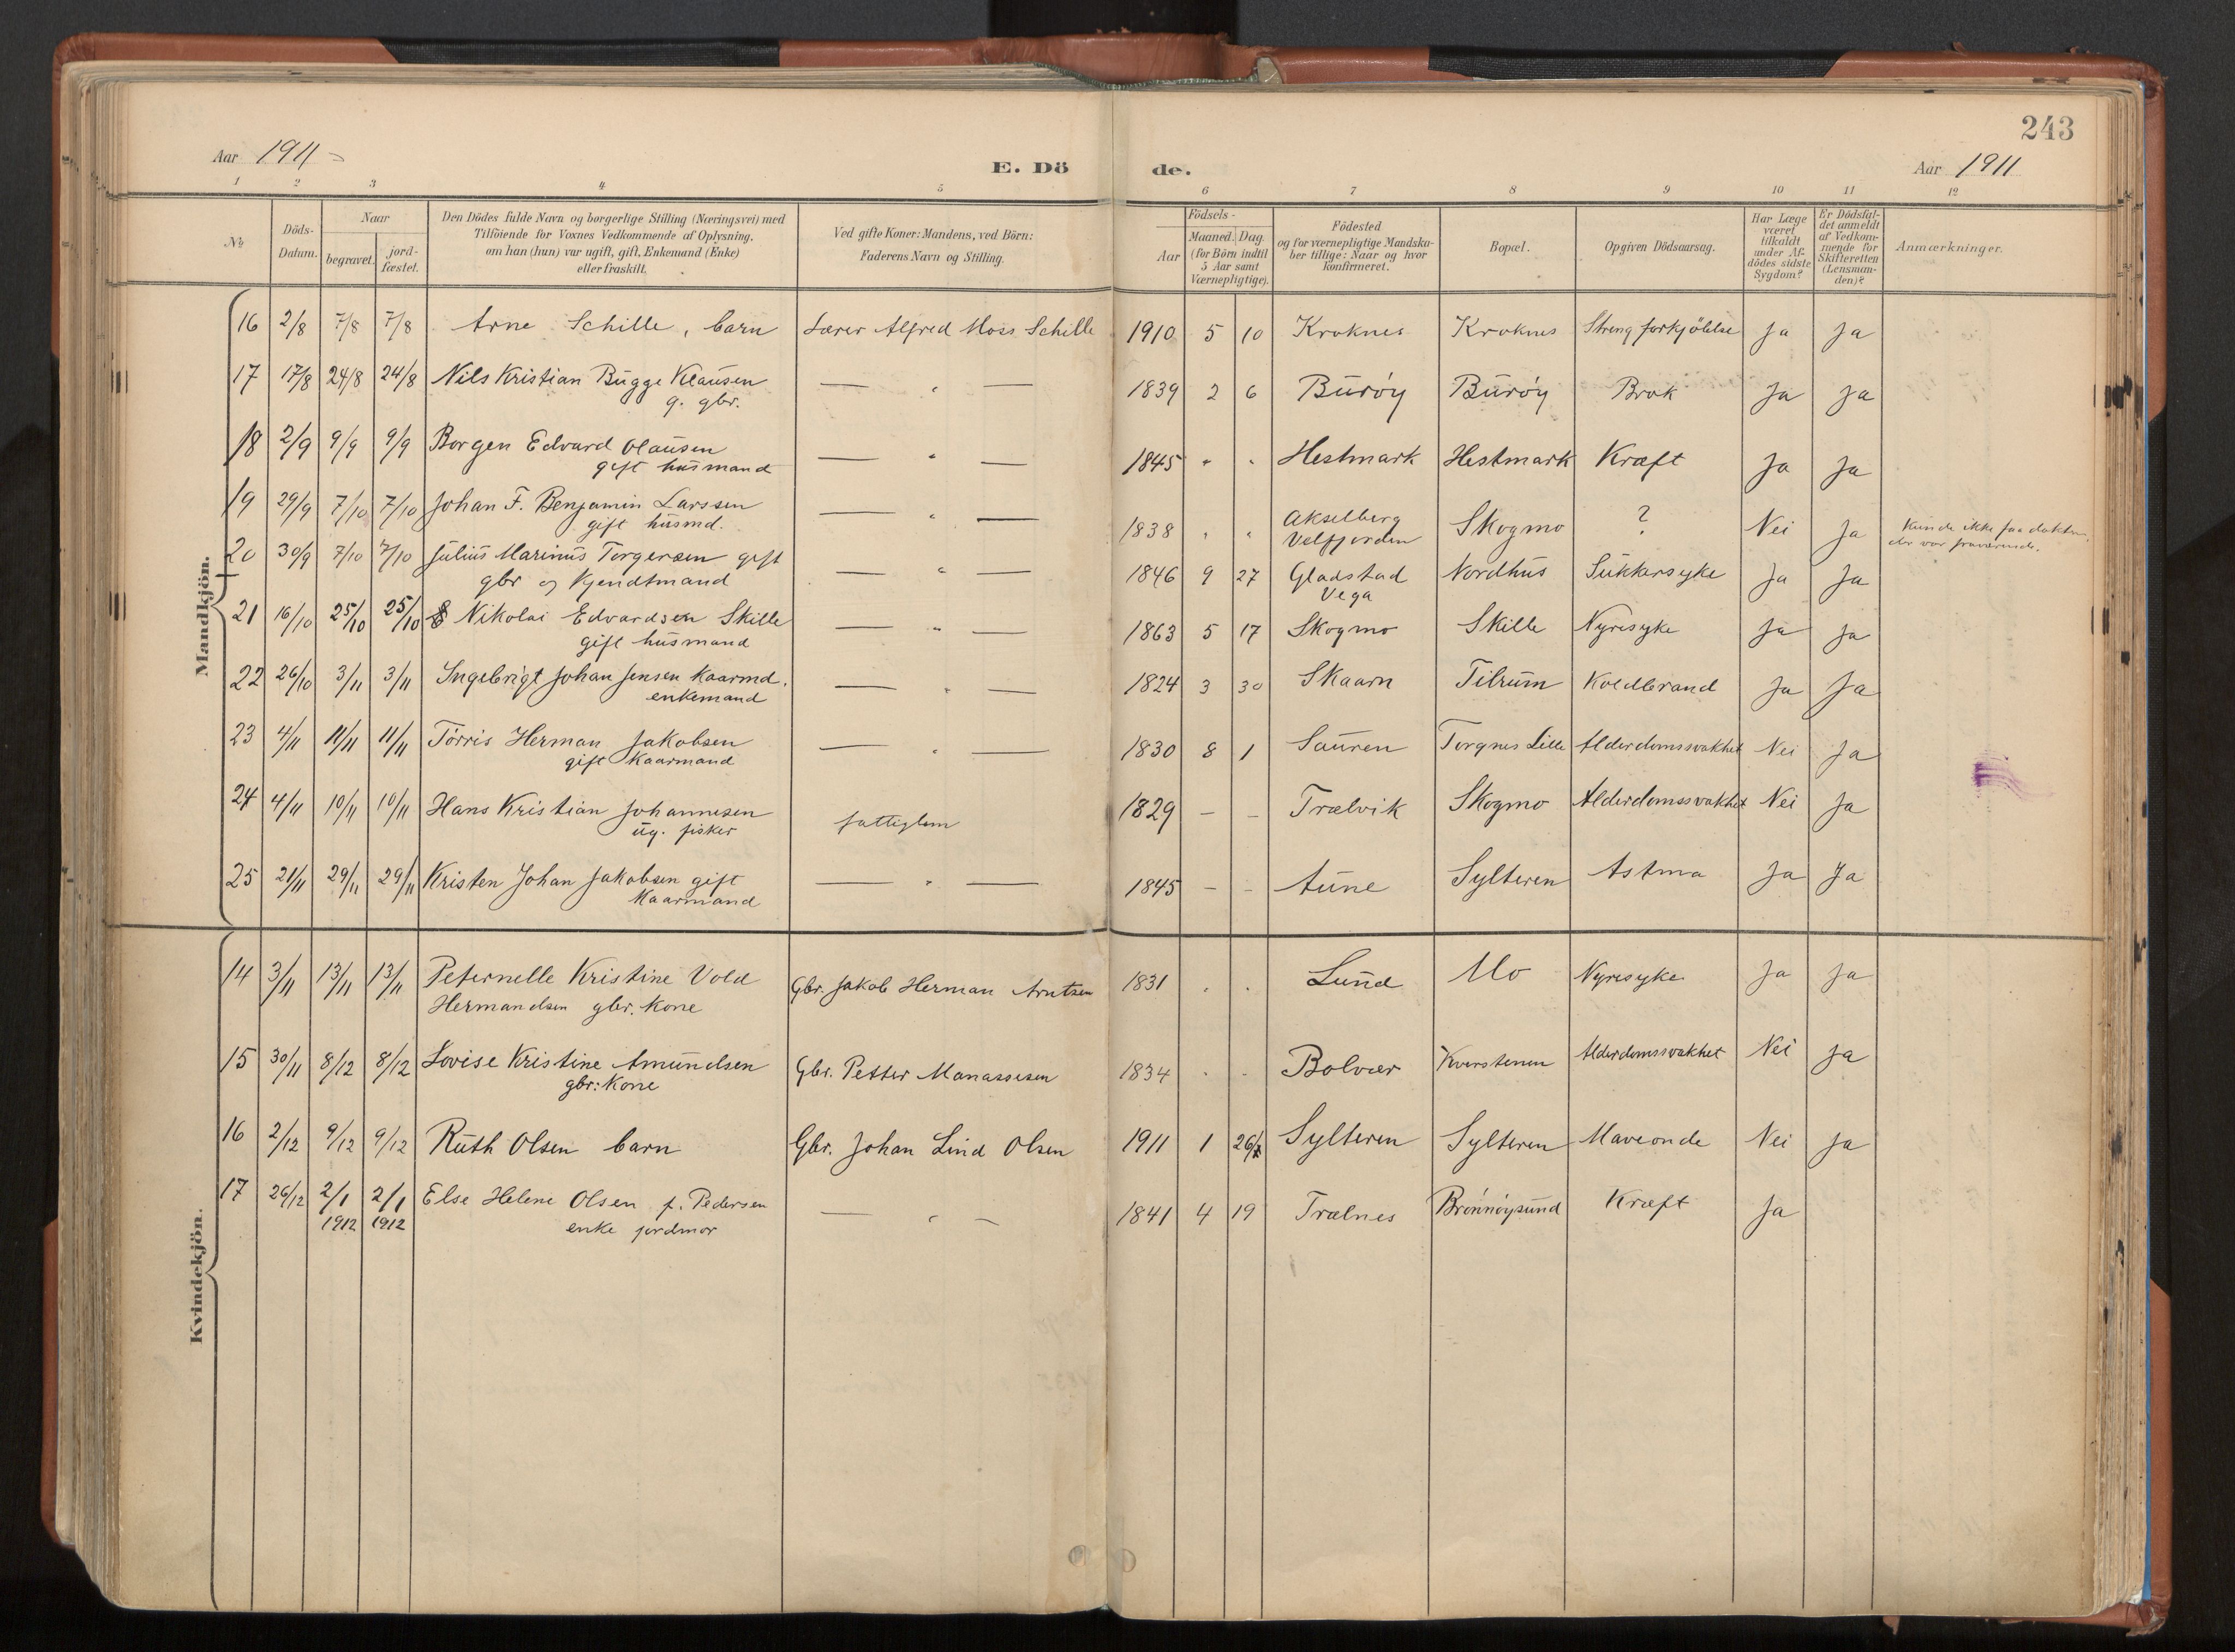 243
Aar 1911
E. Dö
de.
Aar 1911
1 2 3 4 5 6 7 8 9 10 11 12
No
Döds-Datum.
Naar
begravet.
jord-fæstet.
Den Dödes fulde Navn og borgerlige Stilling (Næringsvei) med
Tilföiende for Voxnes Vedkommende af Oplysning,
om han (hun) var ugift, gift, Enkemand (Enke)
eller fraskilt.
Ved gifte Koner: Mandens, ved Börn:
Faderens Navn og Stilling.
Födsels-
Aar
Maaned. Dag.
(for Börn indtil
5 Aar samt
Værnepligtige).
Födested
og for værnepligtige Mandska-
ber tillige: Naar og hvor
konfirmeret.
Bopæl.
Opgiven Dödsaarsag.
Har Læge
været
tilkaldt
under Af-
dödes sidste
Sygdom?
Er Dödsfal-
det anmeldt
af Vedkom-
mende for
Skifteretten
(Lensman-
den)?
Anmærkninger.
Mandkjön.
16 2/8 7/8 7/8 Arne Schille, barn Lærer Alfred Moss Schille 1910 5 10 Kroknes Kroknes Streng forkjölelse Ja Ja
17 17/8 24/8 24/8 Nils Kristian Bugge Klausen — " — 1839 2 6 Buröy Buröy Brok Ja Ja
g. gbr.
18 2/9 9/9 9/9 Borgen Edvard Olausen — " — 1845 " " Hestmark Hestmark Kræft Ja Ja
gift husmand
19 29/9 7/10 7/10 Johan F. Benjamin Larssen — " — 1838 " " Akselberg Velfjorden Skogmo ? Nei Ja Kunde ikke faa doktor,
gift husmd. der var fraværende.
20 30/9 7/10 7/10 Julius Marinus Torgersen gift — " — 1846 9 27 Gladstad Vega Nordhus Sukkersyke Ja Ja
gbr og Kjendtmand
21 16/10 25/10 25/10 Nikolai Edvardsen Skille — " — 1863 5 17 Skogmo Skille Nyresyke Ja Ja
gift husmand
22 26/10 3/11 3/11 Ingebrigt Johan Jensen Kaarmd. — " — 1824 3 30 Skaarn Tilrum Koldbrand Ja Ja
enkemand
23 4/11 11/11 11/11 Törris Herman Jakobsen — " — 1830 8 1 Sauren Torgnes Lille Alderdomssvakhet Nei Ja
gift Kaarmand
24 4/11 10/11 10/11 Hans Kristian Johannesen fattiglem 1829 — — Trælvik Skogmo Alderdomssvakhet Nei Ja
ug. fisker
25 21/11 29/11 29/11 Kristen Johan Jakobsen gift — " — 1845 — — Aune Sylteren Astma Ja Ja
Kaarmand
Kvindekjön.
14 3/11 13/11 13/11 Peternelle Kristine Vold Gbr. Jakob Herman Arntsen 1831 . . Lund Mo Nyresyke Ja Ja
Hermandsen gbr. Kone
15 30/11 8/12 8/12 Lovise Kristine Amundsen Gbr. Petter Manassesen 1834 . . Bolvær Kverstenen Alderdomssvakhet Nei Ja
gbr: Kone
16 2/12 9/12 9/12 Ruth Olsen barn Gbr. Johan Lind Olsen 1911 1 26 Sylteren Sylteren Maveonde Nei Ja
17 26/12 2/1 1912 2/1 1912 Else Helene Olsen f. Pedersen — " — 1841 4 19 Trælnes Brönnöysund Kræft Ja
enke jordmor